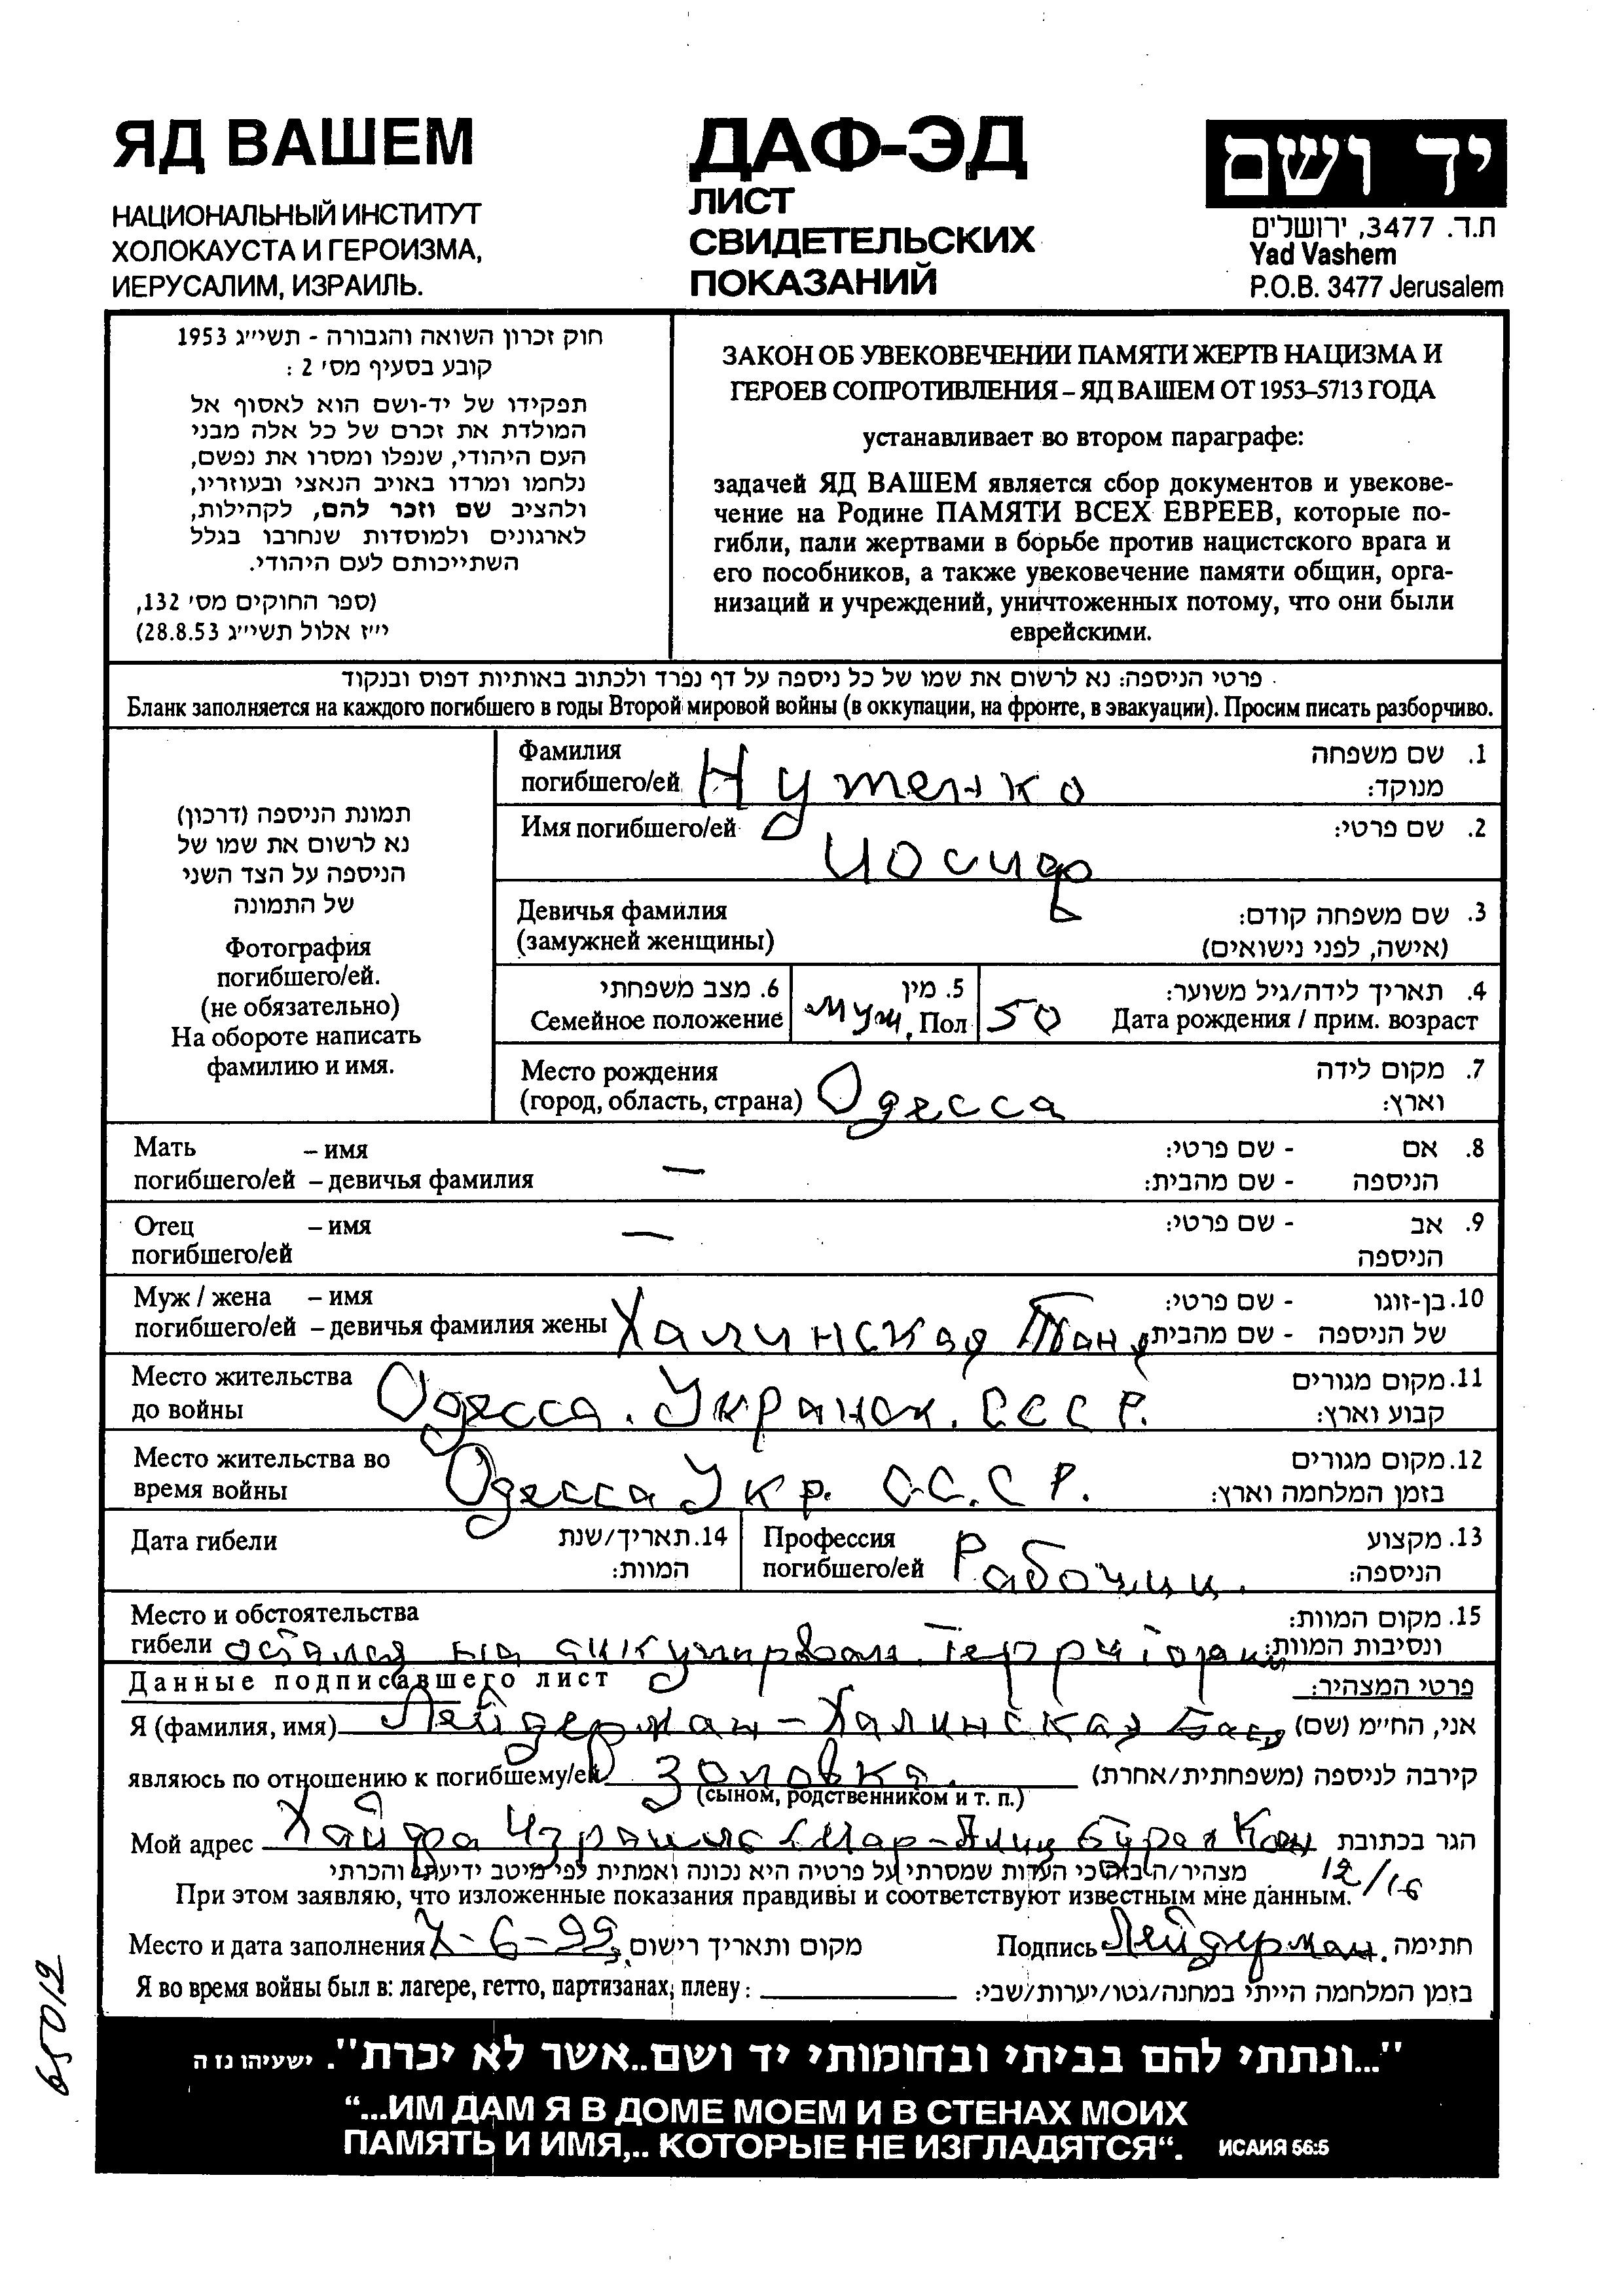 ЯД ВАШЕМ
НАЦИОНАЛЬНЫЙ ИНСТИТУТ
ХОЛОКАУСТА И ГЕРОИЗМА,
ИЕРУСАЛИМ, ИЗРАИЛЬ.
ДАФ-ЭД
ЛИСТ
СВИДЕТЕЛЬСКИХ
ПОКАЗАНИЙ
יד ושם
ת.ד. 3477, ירושלים
Yad Vashem
P.O.B. 3477 Jerusalem
חוק זכרון השואה והגבורה - תשי״ג 1953
קובע בסעיף מס׳ 2 :
תפקידו של יד-ושם הוא לאסוף אל
המולדת את זכרם של כל אלה מבני
העם היהודי, שנפלו ומסרו את נפשם,
נלחמו ומרדו באויב הנאצי ובעוזריו,
ולהציב שם וזכר להם, לקהילות,
לארגונים ולמוסדות שנחרבו בגלל
השתייכותם לעם היהודי.
(ספר החוקים מס׳ 132,
י״ז אלול תשי״ג 28.8.53)
ЗАКОН ОБ УВЕКОВЕЧЕНИИ ПАМЯТИ ЖЕРТВ НАЦИЗМА И
ГЕРОЕВ СОПРОТИВЛЕНИЯ – ЯД ВАШЕМ ОТ 1953–5713 ГОДА
устанавливает во втором параграфе:
задачей ЯД ВАШЕМ является сбор документов и увекове-
чение на Родине ПАМЯТИ ВСЕХ ЕВРЕЕВ, которые по-
гибли, пали жертвами в борьбе против нацистского врага и
его пособников, а также увековечение памяти общин, орга-
низаций и учреждений, уничтоженных потому, что они были
еврейскими.
פרטי הניספה: נא לרשום את שמו של כל ניספה על דף נפרד ולכתוב באותיות דפוס ובנקוד
Бланк заполняется на каждого погибшего в годы Второй мировой войны (в оккупации, на фронте, в эвакуации). Просим писать разборчиво.
תמונת הניספה (דרכון)
נא לרשום את שמו של
הניספה על הצד השני
של התמונה
Фотография
погибшего/ей.
(не обязательно)
На обороте написать
фамилию и имя.
Фамилия 1. שם משפחה
погибшего/ей Нутенко מנוקד:
Имя погибшего/ей Иосиф 2. שם פרטי:
Девичья фамилия 3. שם משפחה קודם:
(замужней женщины) (אישה, לפני נישואים)
6. מצב משפחתי 5. מין 4. תאריך לידה/גיל משוער:
Семейное положение муж. Пол 50 Дата рождения / прим. возраст
Место рождения 7. מקום לידה
(город, область, страна) Одесса וארץ:
Мать – имя 8. אם - שם פרטי:
погибшего/ей – девичья фамилия — הניספה - שם מהבית:
Отец – имя — 9. אב - שם פרטי:
погибшего/ей הניספה
Муж / жена – имя 10. בן-זוגו - שם פרטי:
погибшего/ей – девичья фамилия жены Халинская Таня של הניספה - שם מהבית:
Место жительства 11. מקום מגורים
до войны Одесса. Украиной. СССР. קבוע וארץ:
Место жительства во 12. מקום מגורים
время войны Одесса Укр. С.С.С Р. בזמן המלחמה וארץ:
Дата гибели 14. תאריך/שנת המוות:
Профессия 13. מקצוע
погибшего/ей Рабочий. הניספה:
Место и обстоятельства 15. מקום המוות:
гибели остался на территории ונסיבות המוות:
Данные подписавшего лист פרטי המצהיר:
Я (фамилия, имя) Лейдерман – Халинская Бася אני, הח״מ (שם)
являюсь по отношению к погибшему/ей золовка. קירבה לניספה (משפחתית/אחרת)
(сыном, родственником и т. п.)
Мой адрес Хайфа Израиль הגר בכתובת
12/16
מצהיר/ה בזה כי העדות שמסרתי על פרטיה היא נכונה ואמתית לפי מיטב ידיעתי והכרתי
При этом заявляю, что изложенные показания правдивы и соответствуют известным мне данным.
Место и дата заполнения 7-6-99. מקום ותאריך רישום Подпись Лейдерман. חתימה
Я во время войны был в: лагере, гетто, партизанах, плену: בזמן המלחמה הייתי במחנה/גטו/יערות/שבי:
65012
"...ונתתי להם בביתי ובחומותי יד ושם..אשר לא יכרת". ישעיהו נז ה
“...ИМ ДАМ Я В ДОМЕ МОЕМ И В СТЕНАХ МОИХ
ПАМЯТЬ И ИМЯ,.. КОТОРЫЕ НЕ ИЗГЛАДЯТСЯ“. ИСАИЯ 56:5